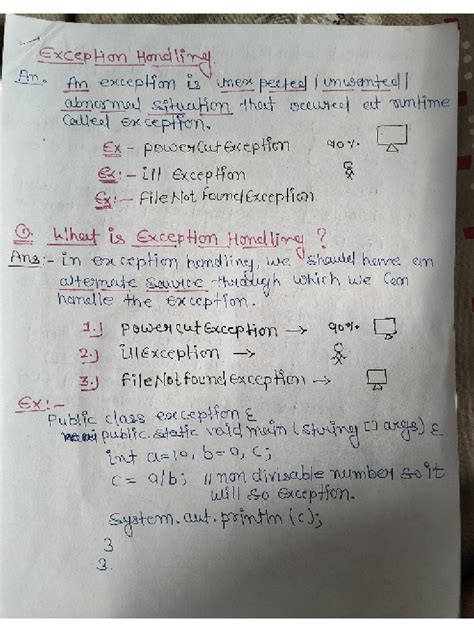 Exception Handling
An. An exception is unexpected / unwanted /
abnormal situation that occured at runtime
called exception.
Ex - powercutException 90%
Ex:- ill Exception
Ex:- FileNotFoundException
Q. What is Exception Handling ?
Ans:- In exception handling, we should have an
alternate source through which we can
handle the exception.
1.) powercutException → 90%
2.) illException →
3.) FileNotFoundException →
Ex:-
Public class exception {
public static void main (string [] args) {
int a=10, b=0, c;
c = a/b; // non divisable number so it
will go exception.
System.out.println (c);
}
}